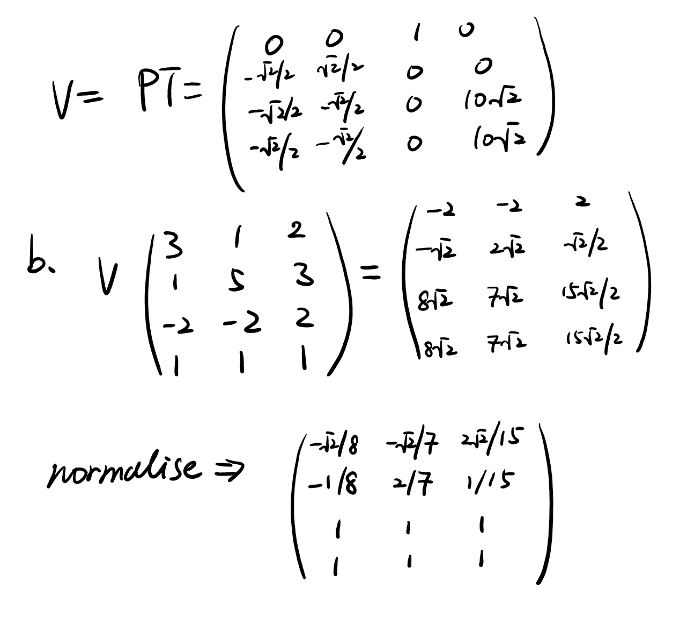 V = PT = ( 0 0 1 0
-√2/2 √2/2 0 0
-√2/2 -√2/2 0 10√2
-√2/2 -√2/2 0 10√2 )
b. V ( 3 1 2
1 5 3
-2 -2 2
1 1 1 ) = ( -2 -2 2
-√2 2√2 √2/2
8√2 7√2 15√2/2
8√2 7√2 15√2/2 )
normalise ⇒ ( -√2/8 -√2/7 2√2/15
-1/8 2/7 1/15
1 1 1
1 1 1 )